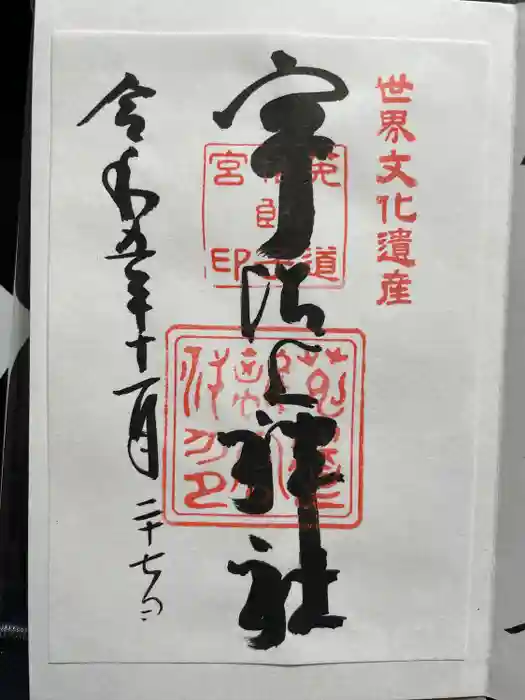 世界文化遺産
宇治上神社
宮印
令和五年十一月二十七日